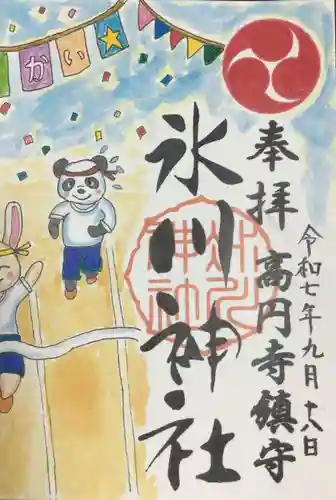 かい
奉拝
高円寺鎮守
氷川神社
令和七年九月十八日